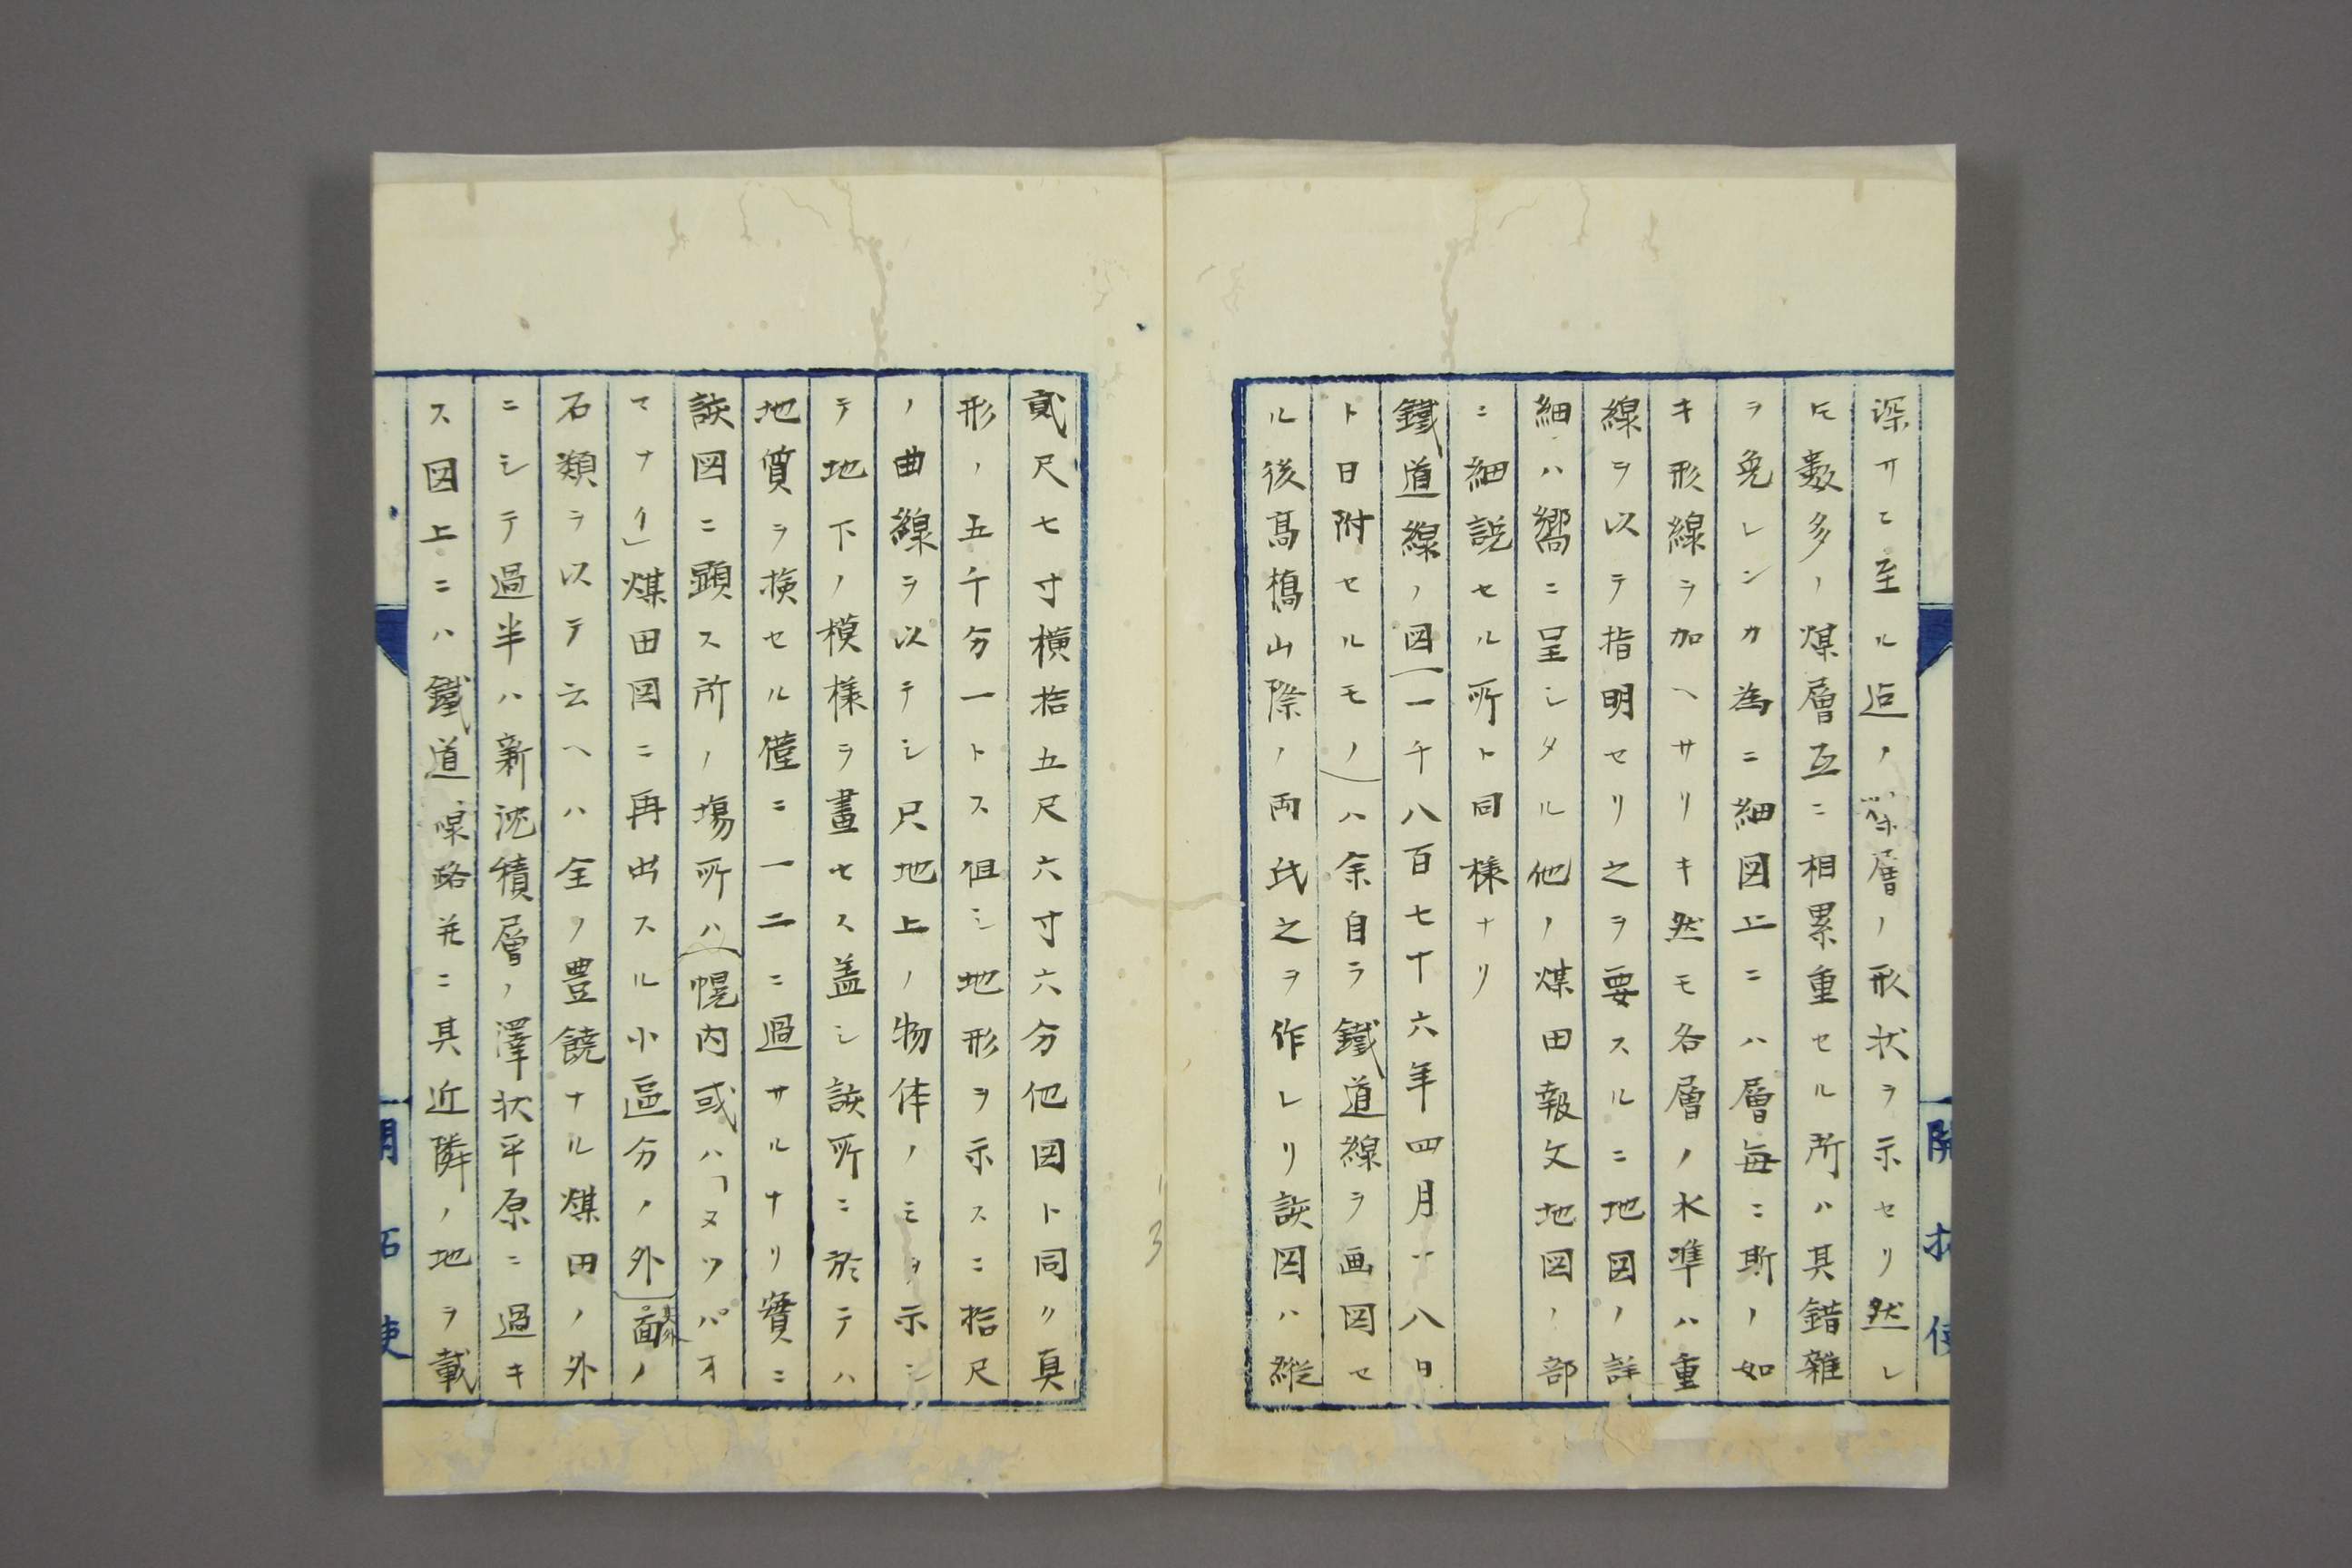 深サニ至ル迠ノ層ノ形状ヲ示セリ然レ
𪜈数多ノ煤層互ニ相累重セル所ハ其錯雜
ヲ免レンカ為ニ細図上ニハ層毎ニ斯ノ如
キ形線ヲ加ヘサリキ然モ各層ノ水準ハ重
線ヲ以テ指明セリ之ヲ要スルニ地図ノ詳
細ハ嚮ニ呈シタル他ノ煤田報文地図ノ部
ニ細説セル所ト同様ナリ
鐵道線ノ図(一千八百七十六年四月十八日
ト日附セルモノ)ハ余自ラ鐵道線ヲ画図セ
ル後髙橋山際ノ両氏之ヲ作レリ該図ハ縦
開拓使
貳尺七寸横拾五尺六寸六分他図ト同ク真
形ノ五千分一トス但シ地形ヲ示スニ拾尺
ノ曲線ヲ以テシ只地上ノ物体ノミヲ示シ
テ地下ノ模様ヲ畫セス盖シ該所ニ於テハ
地質ヲ検セル僅ニ一二ニ過サルナリ實ニ
該図ニ顕ス所ノ塲所ハ(幌内或ハ「ヌツパオ
マナイ」煤田図ニ再出スル小區分ノ外)面ノ
石類ヲ以テ云ヘハ全ク豊饒ナル煤田ノ外
ニシテ過半ハ新沈積層ノ澤状平原ニ過キ
ス図上ニハ鐵道線路并ニ其近隣ノ地ヲ載
開拓使
13